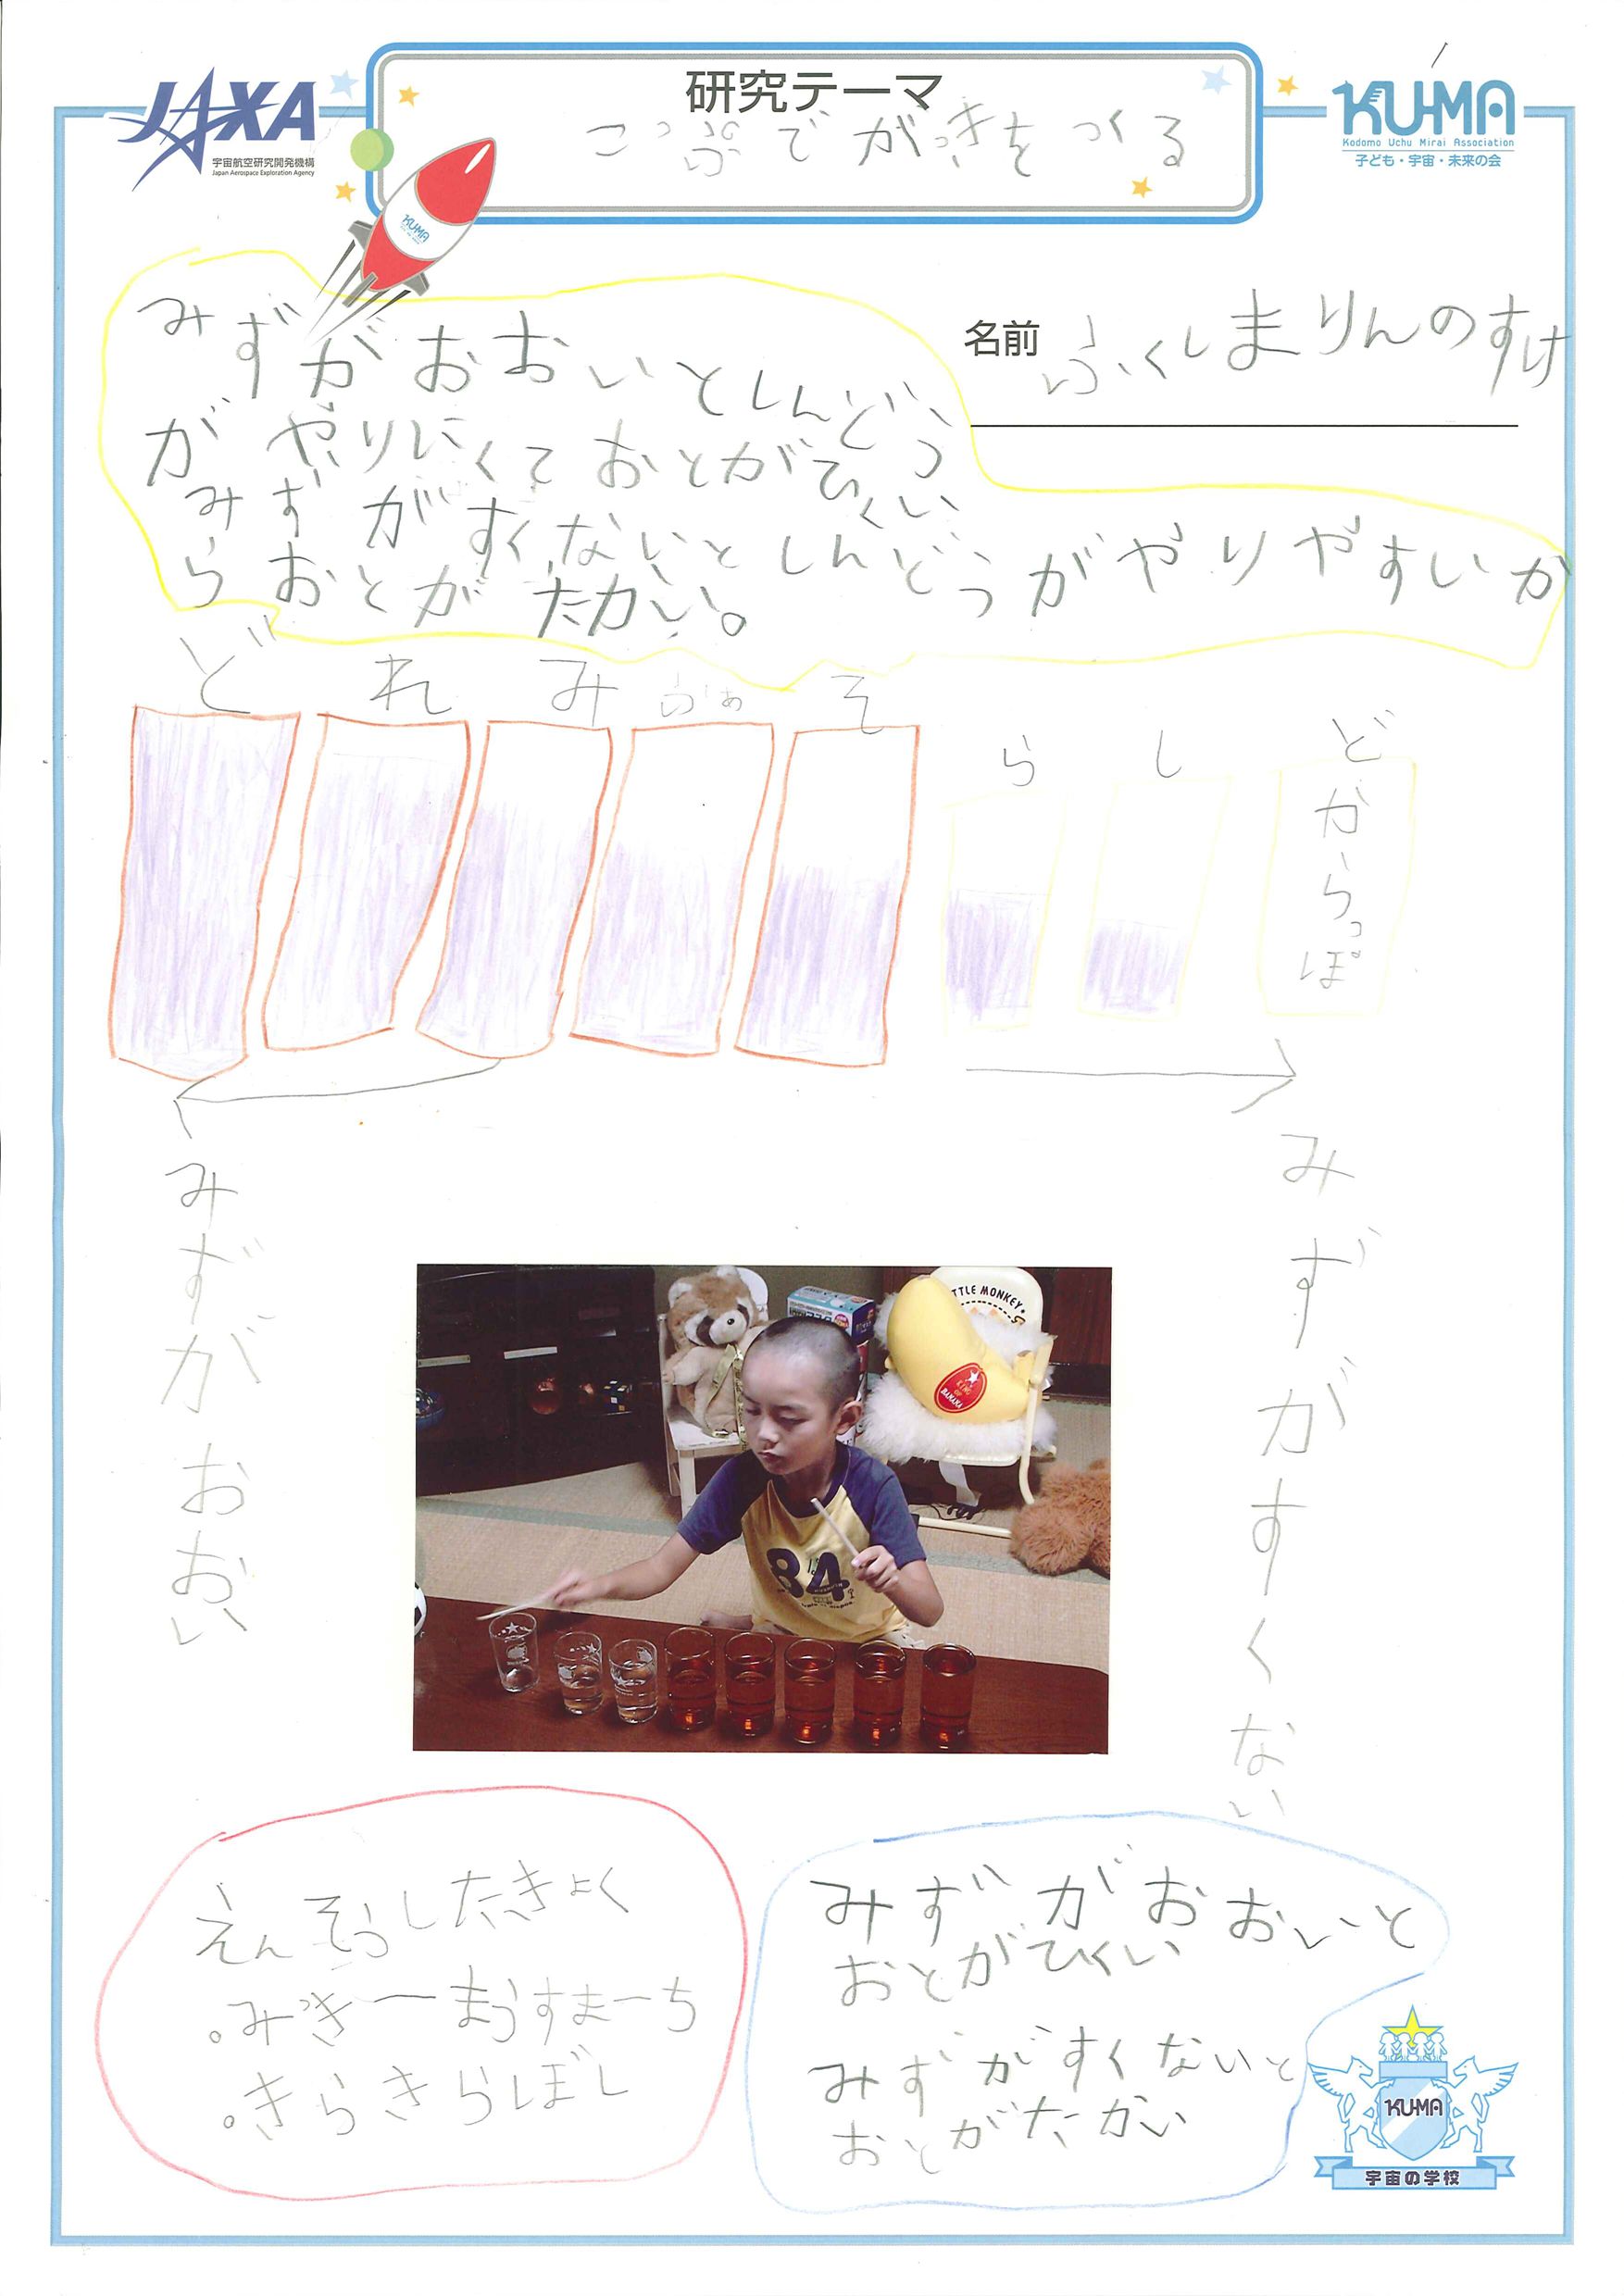 JAXA
宇宙航空研究開発機構
Japan Aerospace Exploration Agency
研究テーマ
こっぷでがっきをつくる
KU-MA
Kodomo Uchu Mirai Association
子ども・宇宙・未来の会
KU-MA
名前 ふくしまりんのすけ
みずがおおいとしんどう
がやりにくておとがひくい
みずがすくないとしんどうがやりやすいか
らおとがたかい。
ど れ み ふぁ そ ら し ど
からっぽ
みずがおおい
みずがすくない
TTLE MONKEY
KING OF BANANA
84
えんそうしたきょく
。みっきーまうすまーち
。きらきらぼし
みずがおおいと
おとがひくい
みずがすくないと
おとがたかい
KU-MA
宇宙の学校